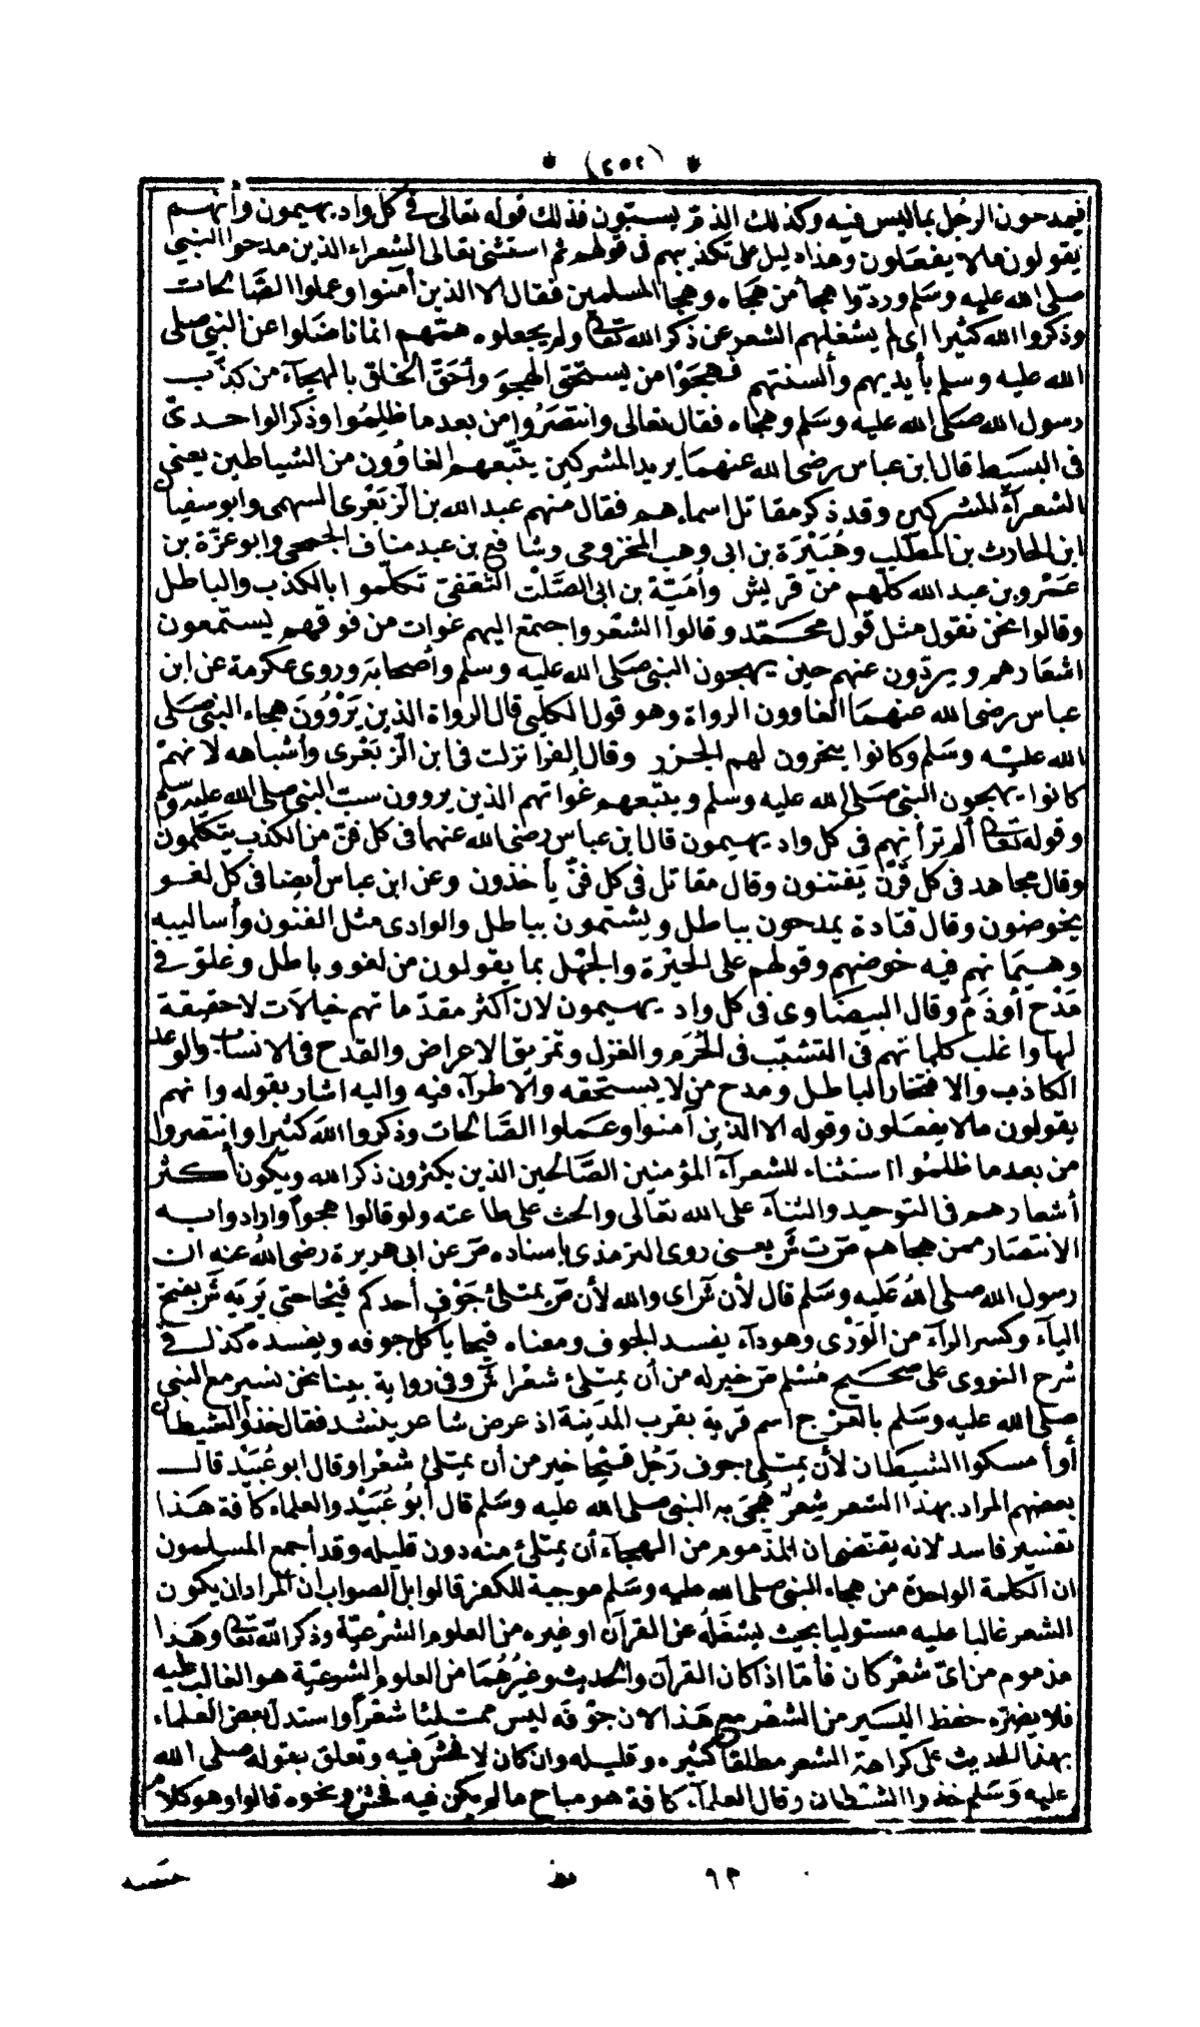 * (٢٥٢) *
فيمدحون الرجُل بما ليس فيه وكذلك الذمّ يسبّون فذلك قوله تعالى في كل واد يهيمون وأنهم
يقولون ما لا يفعَلون وهذا دليل على تكذيبهم فى قولهم ثم استثنى تعالى الشعراء الذين مدحوا النبي
صلى الله عليه وسَلم وردّوا هجأ من هجَاه وهجأ المسلمين فقال الا الذين آمنوا وعملوا الصَّالحات
وذكروا الله كثيرا اى لم يشغلهم الشعر عن ذكر الله تعالى ولم يجعلوه همّتهم انما ناضَلوا عن النبي صلى
الله عليه وسلم بأيديهم وألسنتهم فهجَوْا من يستحق الهجوَ وأحَقّ الخلق بالهجآء من كذّب
رسول الله صَلى الله عليه وسَلم وهجَاه فقال تعالى وانتصَرُوا من بعد ما ظلِمُوا وذكر الواحدىّ
فى البسَيط قال ابن عباس رضى الله عنهمَا يريد المشركين يتبّعهم الغاوُون من الشياطين يعنى
الشعرآءَ المشركين وقد ذكر مقاتل اسماءهم فقال منهم عبد الله بن الزّبَعْرى السهمى وابوسفيان
ابن الحارث بن المطّلب وهُبَيْرَة بن ابى وهب المخزومى وشافع بن عبد مناف الجمحى وابوعزّة بن
عَمْرو بن عبد الله كلّهم من قريش وأمَيّة بن ابى الصَّلْت الثقفىّ تكلّموا بالكذب والباطل
وقالوا نحن نقول مثل قول محمّد وقالوا الشعر واجتمع اليهم غوات من قومهم يستمعون
اشعارهم ويردّون عنهم حين يهجون النبى صَلى الله عليه وسلم وأصحابه وروى عكرمة عن ابن
عباس رضى الله عنهمَا الغاوون الرواة وهو قول الكلبى قال الرواة الذين يَرْوُونَ هجاء النبى صَلى
الله عليْه وسَلم وكانوا ينحرون لهم الجزر وقال الفرا نزلت فى ابن الزّبَعْرى وأشباهه لانهمْ
كانوا يهجون النبى صَلى الله عليه وسلم ويتبّعهم غُواتهم الذين يروون سبّ النبى صلى الله عليه وسَلم
وقوله تعالى ألم تر أنهم فى كل واد يهيمون قال ابن عباس رضى الله عنهما فى كل فنّ من الكذب يتكلّمون
وقال مجاهد فى كل فَنّ يَفتنون وقال مقاتل فى كل فنّ يأخذون وعن ابن عباس أيضا فى كل لغو
يخوضون وقال قتادة يمدحون بباطل ويشتمون بباطل والوادى مثل الفنون وأساليبه
وهيَمانهم فيه خوضهم وقولهم على الحَيْرة والجَهْل بما يقولون من لغو وباطل وغلوّ في
مَدْح أو ذَمّ وقال البيضَاوى فى كل واد يهيمون لان أكثر مقدّماتهم خيالات لا حقيقة
لها واغلب كلماتهم فى التشبّب فى الحُرَم والغزل وتمزيق الاعراض والقدح فى الانساب والوعد
الكاذب والافتخار الباطل ومدح من لا يستحقه والاطرآء فيه واليه اشار بقوله وانهم
يقولون ما لا يفعَلون وقوله الا الذين آمنوا وعَملوا الصَّالحات وذكروا اللهَ كثيرا وانتصروا
من بعد ما ظلمُوا استثناء للشعرآء المؤمنين الصَّالحين الذين يكثرون ذكر الله ويكون أكثر
أشعارهم فى التوحيد والثنآء على الله تعالى والحث على طاعته ولو قالوا هجواً وارادوا به
الانتصَار ممن هجاهم مرّت ثمّ يعنى روى الترمذى باسناده مرّ عن ابى هريرة رضى اللهُ عنه ان
رسول الله صلى اللهُ عَليه وسَلم قال لأن ثمّ اى والله لأن مّ يمتلئ جَوْف أحدكم قَيْحا حتى يَرِيَه ثمّ بفتح
اليآء وكسر الرآء من الوَرْى وهو دآء يفسد الجوف ومعناه قيحا يأكل جوفه ويفسده كذا في
شرح النووى على صحيح مُسْلم مّ خير له من أن يمتلئ شعْرا ثمّ وفى رواية بينا نحن نسير مع النبي
صلى الله عليه وسَلم بالعَرْج اسم قرية بقرب المدَينة اذ عرض شاعر ينشد فقال خذوا الشيطان
أو أمسكوا الشيطان لأن يمتلئ جوف رَجُل قيْحا خير من أن يمتلئ شعْرا وقال ابوعُبَيْد قال
بعضهم المراد بهذا الشعر شِعرٌ هُجِىَ به النبى صلى الله عليه وسَلم قال أبوعُبَيْد والعلماء كافة هَذا
تفسير فاسد لانه يقتضى ان المذموم من الهجآء أن يمتلئ منه دون قليله وقد أجمع المسلمون
ان الكلمة الواحدة من هجاء النبى صلى الله عليه وسَلم موجبة للكفر قالوا بل الصواب أن المراد ان يكون
الشعر غالبا عليه مستوليا بحيث يشغَلُه عن القرآن اوغيره من العلوم الشرْعيّة وذكر الله تعالى وهَذا
مذموم من اىّ شعْر كان فأمّا اذا كان القرآن والحديث وغيرهُمَا من العلوم الشرعيّة هو الغالب عليه
فلا يضرّه حفظ اليَسَير من الشعْر مع هَذا لان جوْفه ليس ممتلئا شعْراً واستدل بعض العلماء
بهذا الحديث على كراهة الشعر مطلقا كثيره وقليله وان كان لا فحش فيه وتعلق بقوله صلى الله
عليه وَسَلم خذوا الشيطان وقال العلمآء كافة هو مباح ما لم يكن فيه فحش ونحوه قالوا وهو كلام
٦٣
حسنه